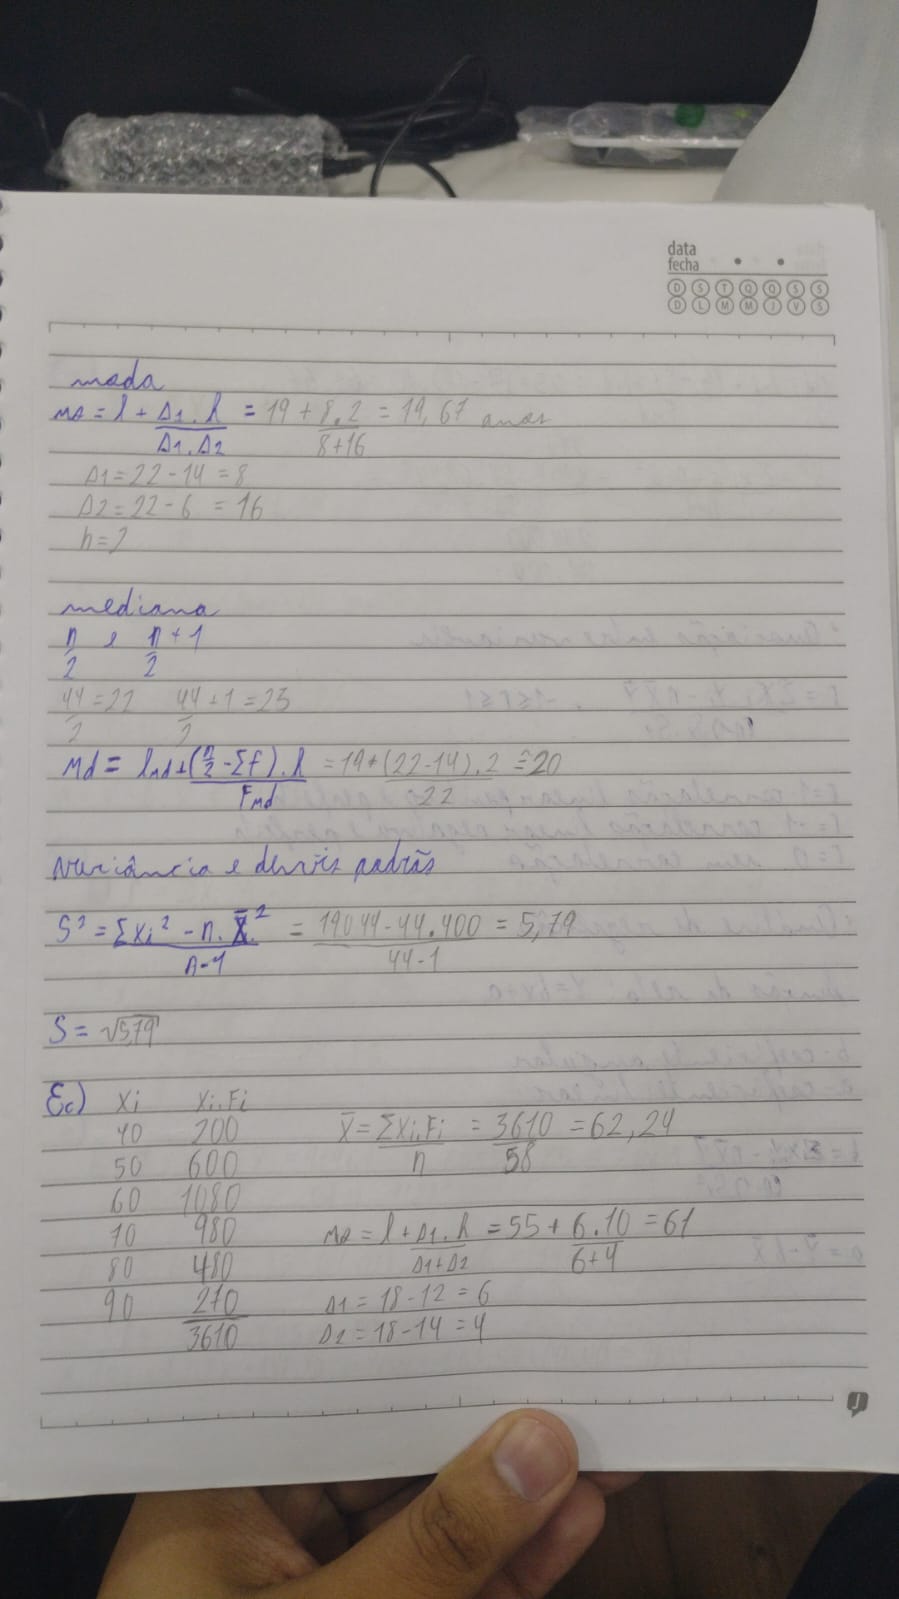 data
fecha
D S T Q Q S S
D L M M J V S
moda
Mo = l + Δ1 . h / Δ1 . Δ2 = 19 + 8 . 2 / 8+16 = 19,67 anos
Δ1 = 22 - 14 = 8
Δ2 = 22 - 6 = 16
h = 2
mediana
n/2 e n/2 + 1
44/2 = 22 44/2 + 1 = 23
Md = lmd + (n/2 - Σf) . h / Fmd = 19 + (22-14) . 2 / 22 = 20
Variância e desvio padrão
S² = Σxi² - n . x̄² / n-1 = 19044 - 44.400 / 44-1 = 5,79
S = √5,79
Ec) Xi Xi.Fi
40 200 x̄ = Σxi.Fi / n = 3610 / 58 = 62,24
50 600
60 1080
70 980 Mo = l + Δ1 . h / Δ1+Δ2 = 55 + 6 . 10 / 6+4 = 61
80 480
90 270 Δ1 = 18 - 12 = 6
3610 Δ2 = 18 - 14 = 4